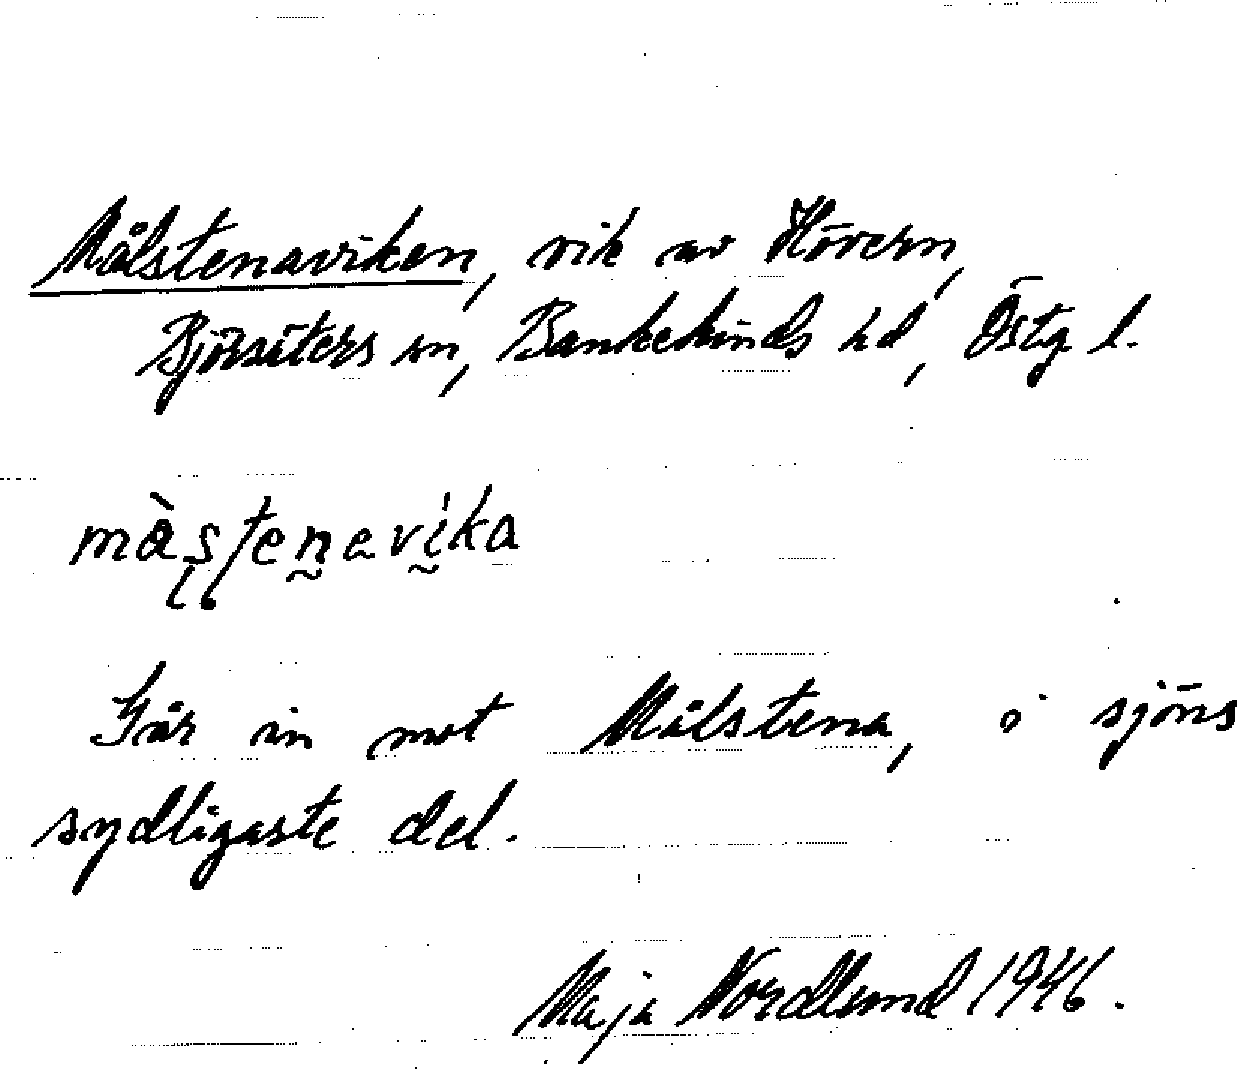 Målstenaviken, vik av Hövern,
Björsäters sn, Bankekinds hd, Östg l.
måstenavika
Går in mot Målstena, i sjöns
sydligaste del.
Maja Nordlund 1946.